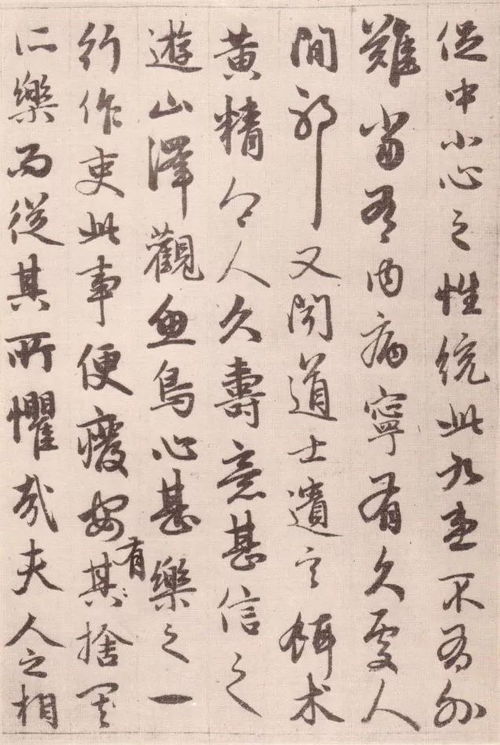 促中小心之性統此九患不有外
難當有内病寧有久處人
間邪又聞道士遺言餌术
黃精令人久壽意甚信之
遊山澤觀魚鳥心甚樂之一
行作吏此事便廢安有其捨其
所樂而從其所懼哉夫人之相